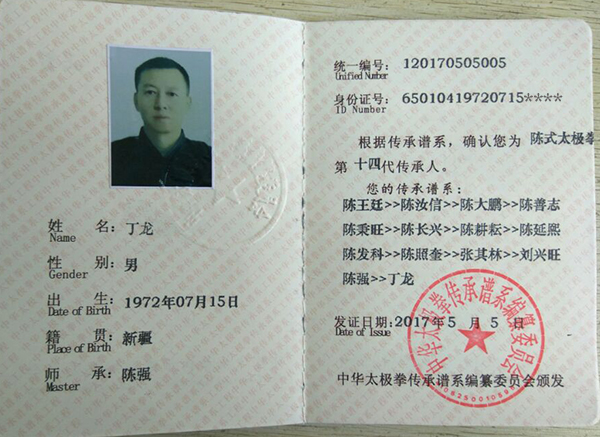 姓 名: 丁龙
Name
性 别: 男
Gender
出 生: 1972年07月15日
Date of Birth
籍 贯: 新疆
Place of Birth
师 承: 陈强
Master
统一编号: 120170505005
Unified Number
身份证号: 65010419720715****
ID Number
根据传承谱系,确认您为 陈式太极拳
第 十四代传承人。
您的传承谱系:
陈王廷>>陈汝信>>陈大鹏>>陈善志
陈秉旺>>陈长兴>>陈耕耘>>陈延熙
陈发科>>陈照奎>>张其林>>刘兴旺
陈强>>丁龙
发证日期: 2017年5月5日
Date of Issue
中华太极拳传承谱系编纂委员会颁发
中华太极拳传承谱系编纂委员会